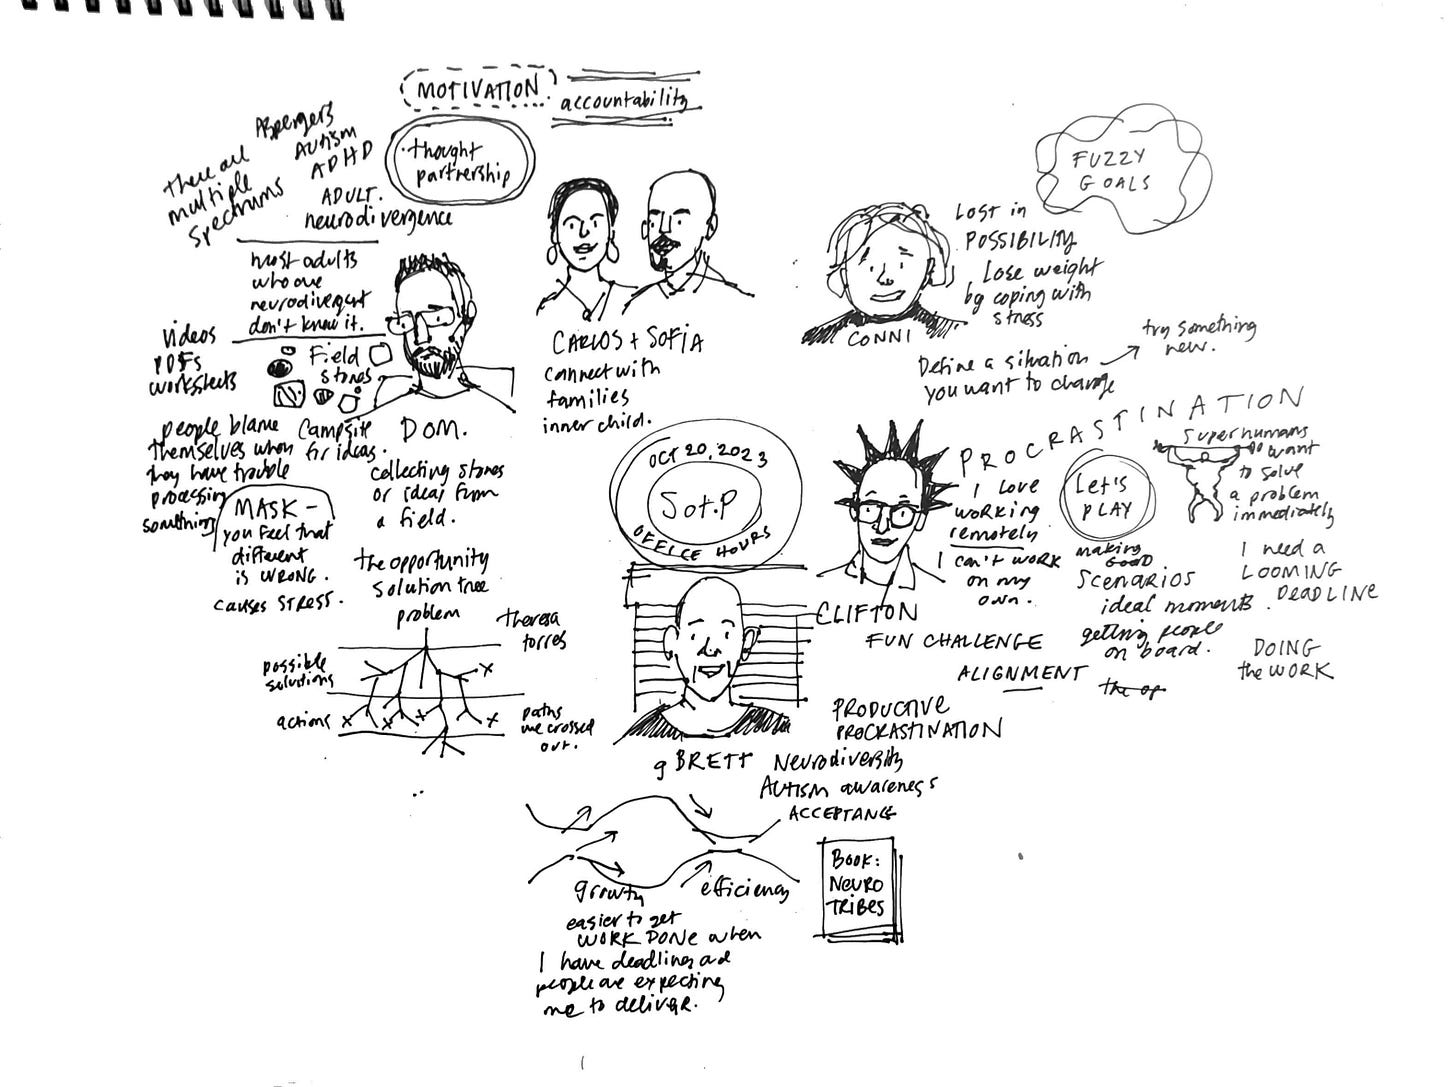 MOTIVATION
accountability
thought
partnership
there are
multiple
spectrums
Aspergers
AUTISM
ADHD
ADULT.
neurodivergence
most adults
who are
neurodivergent
don't know it.
videos
PDFs
worksheets
Field
stones
Campsite
for ideas.
DOM.
people blame
themselves when
they have trouble
processing
something
MASK -
you feel that
different
is WRONG.
causes STRESS.
collecting stones
or ideas from
a field.
the opportunity
solution tree
problem
Theresa
torres
possible
solutions
actions
paths
we crossed
out.
CARLOS + SOFIA
connect with
families
inner child.
FUZZY
GOALS
LOST in
POSSIBILITY
Lose weight
by coping with
stress
CONNI
Define a situation
you want to change
try something
new.
OCT 20, 2023
Sot.P
OFFICE HOURS
PROCRASTINATION
I LOVE
WORKING
remotely
I can't WORK
on my
own.
CLIFTON
Let's
PLAY
Superhumans
want
to solve
a problem
immediately
making
GOOD
SCENARIOS
ideal moments.
getting people
on board.
the op
I need a
LOOMING
DEADLINE
DOING
the WORK
FUN CHALLENGE
ALIGNMENT
PRODUCTIVE
PROCRASTINATION
g BRETT
Neurodiversity
AUTISM awareness
ACCEPTANCE
growth
efficiency
easier to get
WORK DONE when
I have deadlines and
people are expecting
me to deliver.
BOOK:
NEURO
TRIBES